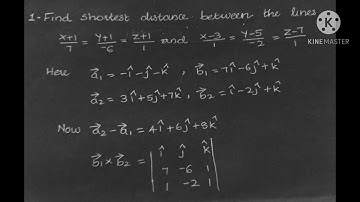 1-Find shortest distance between the lines
x+1/7 = y+1/-6 = z+1/1 and x-3/1 = y-5/-2 = z-7/1
KINEMASTER
Here a⃗₁ = -î-ĵ-k̂, b⃗₁ = 7î-6ĵ+k̂
a⃗₂ = 3î+5ĵ+7k̂, b⃗₂ = î-2ĵ+k̂
Now a⃗₂-a⃗₁ = 4î+6ĵ+8k̂
b⃗₁×b⃗₂ = | î ĵ k̂ |
| 7 -6 1 |
| 1 -2 1 |